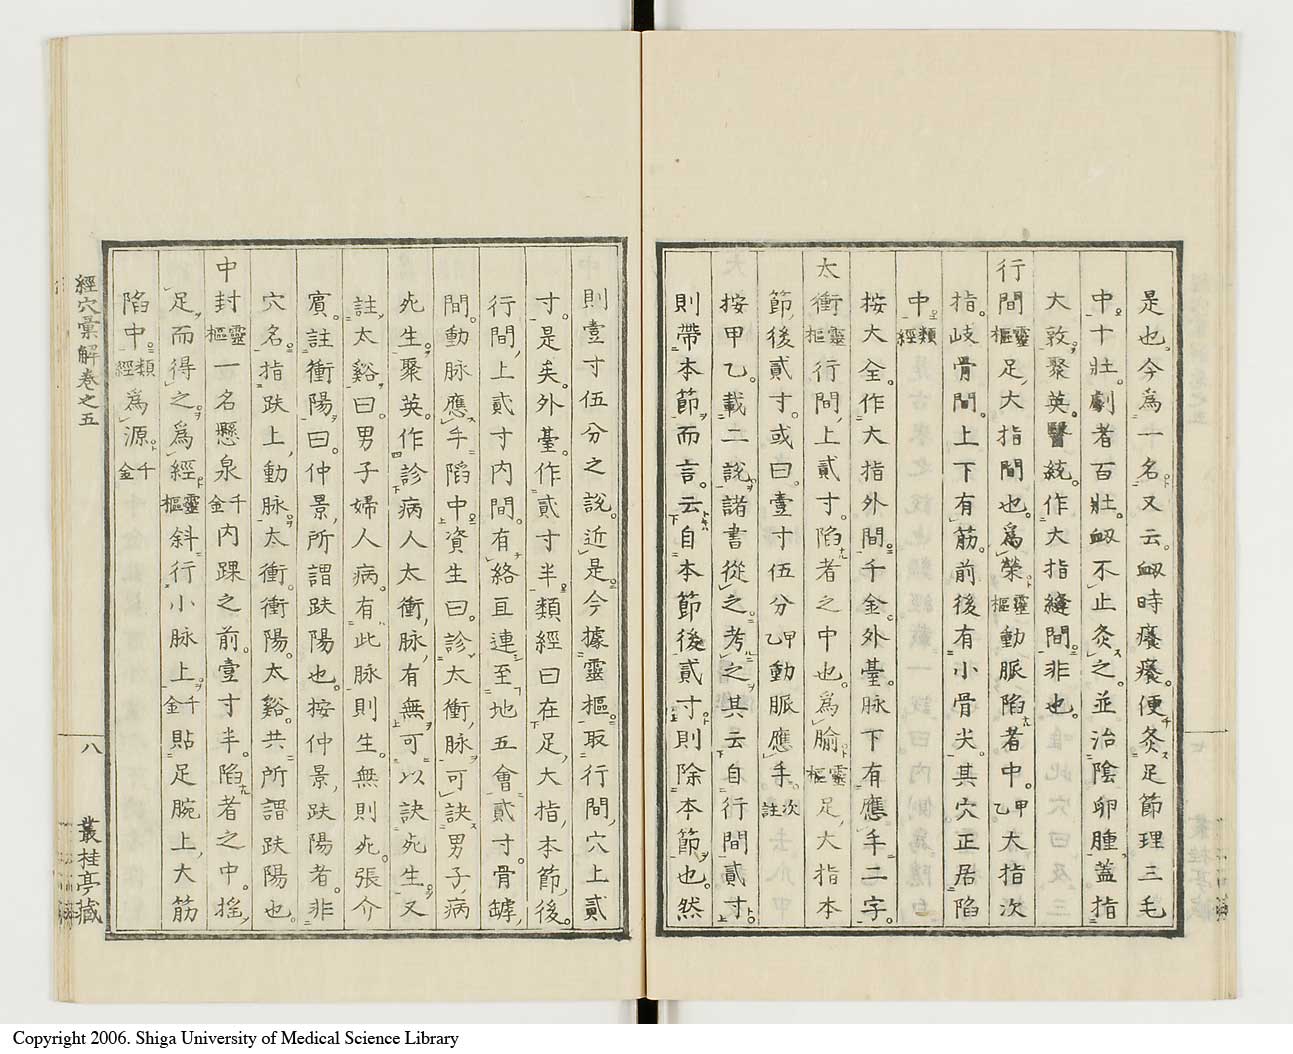 是也今爲一名又云衂時癢癢便灸足節理三毛
中十壯劇者百壯衂不止灸之並治陰卵腫蓋指
大敦聚英醫統作大指縫間非也
行間靈樞足大指間也爲榮靈樞動脈陷者中甲乙大指次
指岐骨間上下有筋前後有小骨尖其穴正居陷
中類經
按大全作大指外間千金外臺脉下有應手二字
太衝靈樞行間上貳寸陷者之中也爲腧靈樞足大指本
節後貳寸或曰壹寸伍分甲乙動脈應手次註
按甲乙載二說諸書從之考之其云自行間貳寸
則帶本節而言云自本節後貳寸則除本節也然
則壹寸伍分之說近是今據靈樞取行間穴上貳
寸是矣外臺作貳寸半類經曰在足大指本節後
行間上貳寸內間有絡亘連至地五會貳寸骨罅
間動脉應手陷中資生曰診太衝脉可訣男子病
死生聚英作診病人太衝脉有無可以訣死生又
註太谿曰男子婦人病有此脉則生無則死張介
賓註衝陽曰仲景所謂趺陽也按仲景趺陽者非
穴名指趺上動脉太衝衝陽太谿共所謂趺陽也
中封靈樞一名懸泉千金內踝之前壹寸半陷者之中搖
足而得之爲經靈樞斜行小脉上千金貼足腕上大筋
陷中類經爲源千金
經穴彙解卷之五
八
叢桂亭藏
Copyright 2006. Shiga University of Medical Science Library